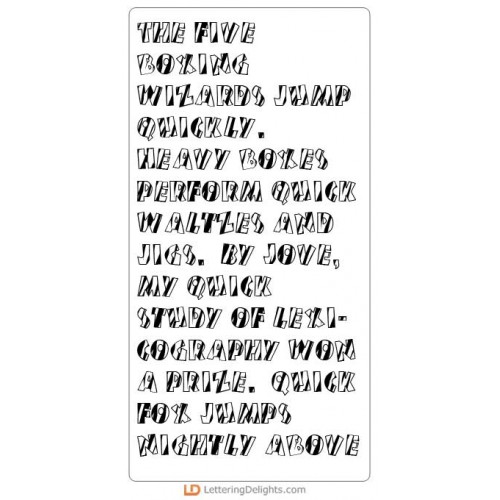 THE FIVE
BOXING
WIZARDS JUMP
QUICKLY.
HEAVY BOXES
PERFORM QUICK
WALTZES AND
JIGS. BY JOVE,
MY QUICK
STUDY OF LEXI-
COGRAPHY WON
A PRIZE. QUICK
FOX JUMPS
NIGHTLY ABOVE
LD LetteringDelights.com